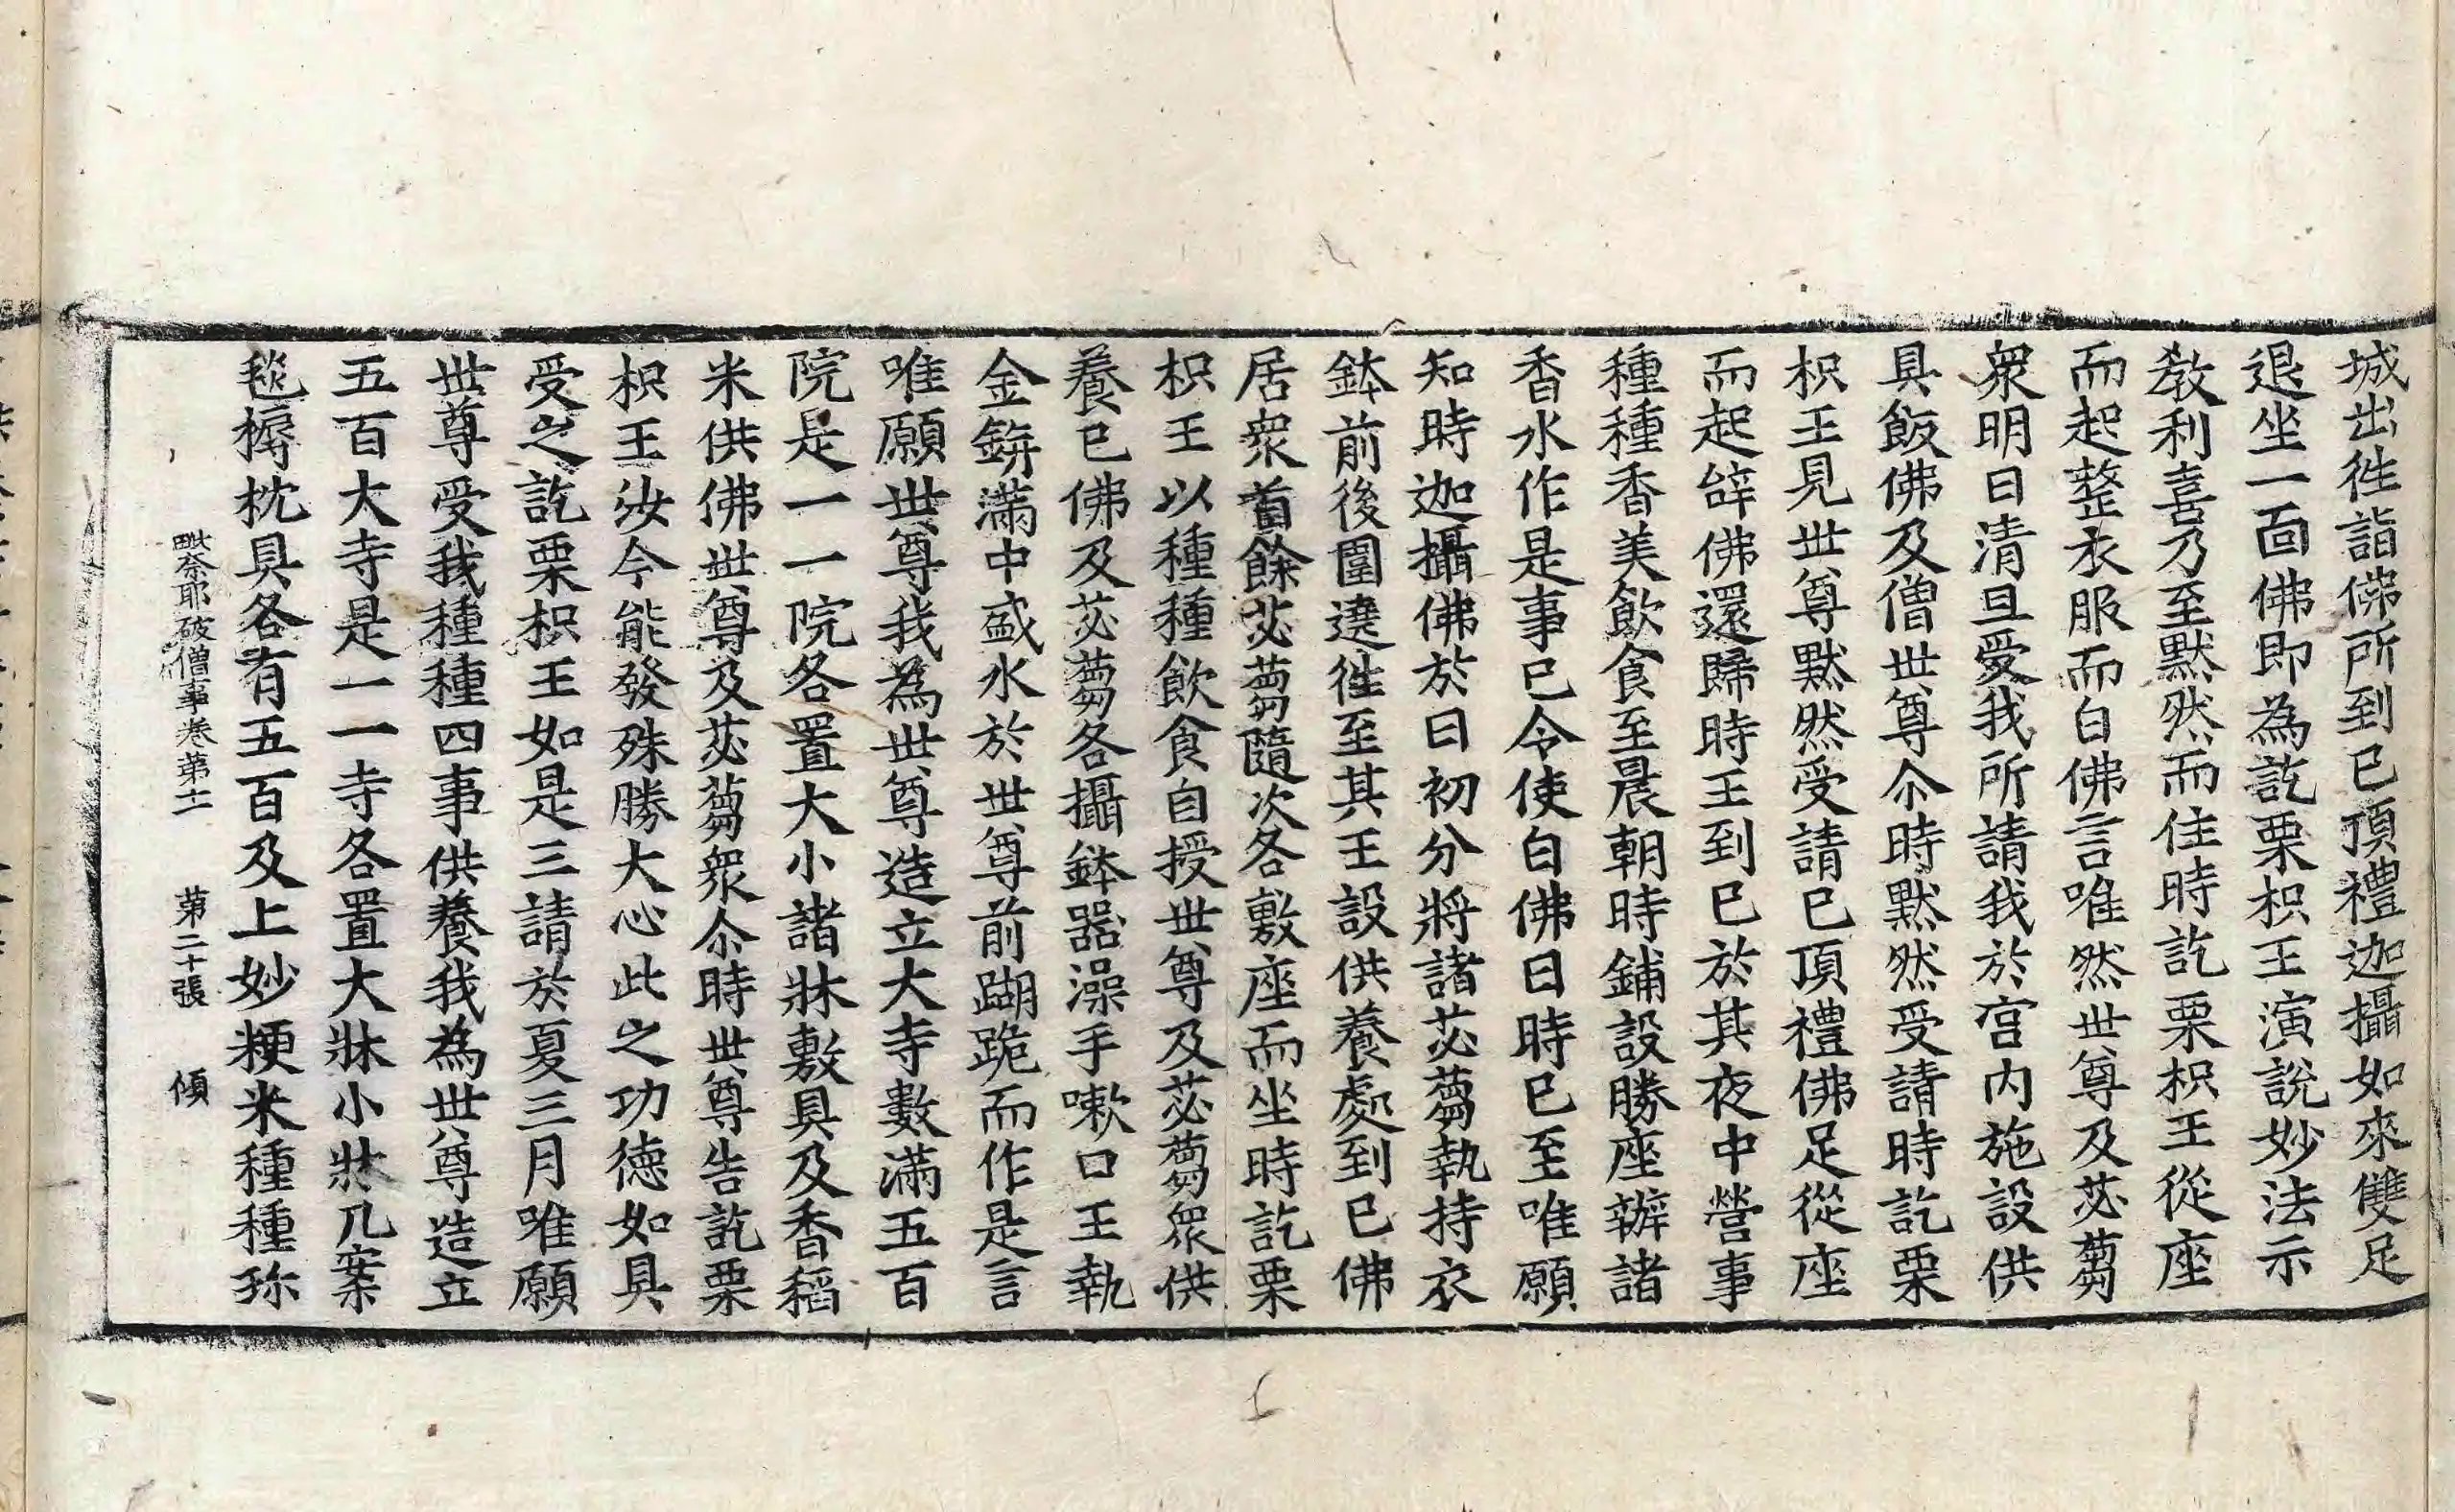 城出徃詣佛所到已頂禮迦攝如來雙足
退坐一面佛即為訖栗枳王演說妙法示
教利喜乃至黙然而住時訖栗枳王從座
而起整衣服而白佛言唯然世尊及苾蒭
衆明日清旦受我所請我於宮內施設供
具飯佛及僧世尊尒時黙然受請時訖栗
枳王見世尊黙然受請已頂禮佛足從座
而起辝佛還歸時王到已於其夜中營事
種種香美飲食至晨朝時鋪設勝座辦諸
香水作是事已令使白佛日時已至唯願
知時迦攝佛於日初分將諸苾蒭執持衣
鉢前後圍遶徃至其王設供養處到已佛
居衆首餘苾蒭隨次各敷座而坐時訖栗
枳王以種種飲食自授世尊及苾蒭衆供
養已佛及苾蒭各攝鉢器澡手嗽口王執
金鉼滿中盛水於世尊前蹦跪而作是言
唯願世尊我為世尊造立大寺數滿五百
院是一一院各置大小諸牀敷具及香稻
米供佛世尊及苾蒭衆尒時世尊告訖栗
枳王汝今能發殊勝大心此之功德如具
受之訖栗枳王如是三請於夏三月唯願
世尊受我種種四事供養我為世尊造立
五百大寺是一一寺各置大牀小牀几案
毯褥枕具各有五百及上妙粳米種種珎
毗奈耶破僧事卷第十一　第二十張　傾